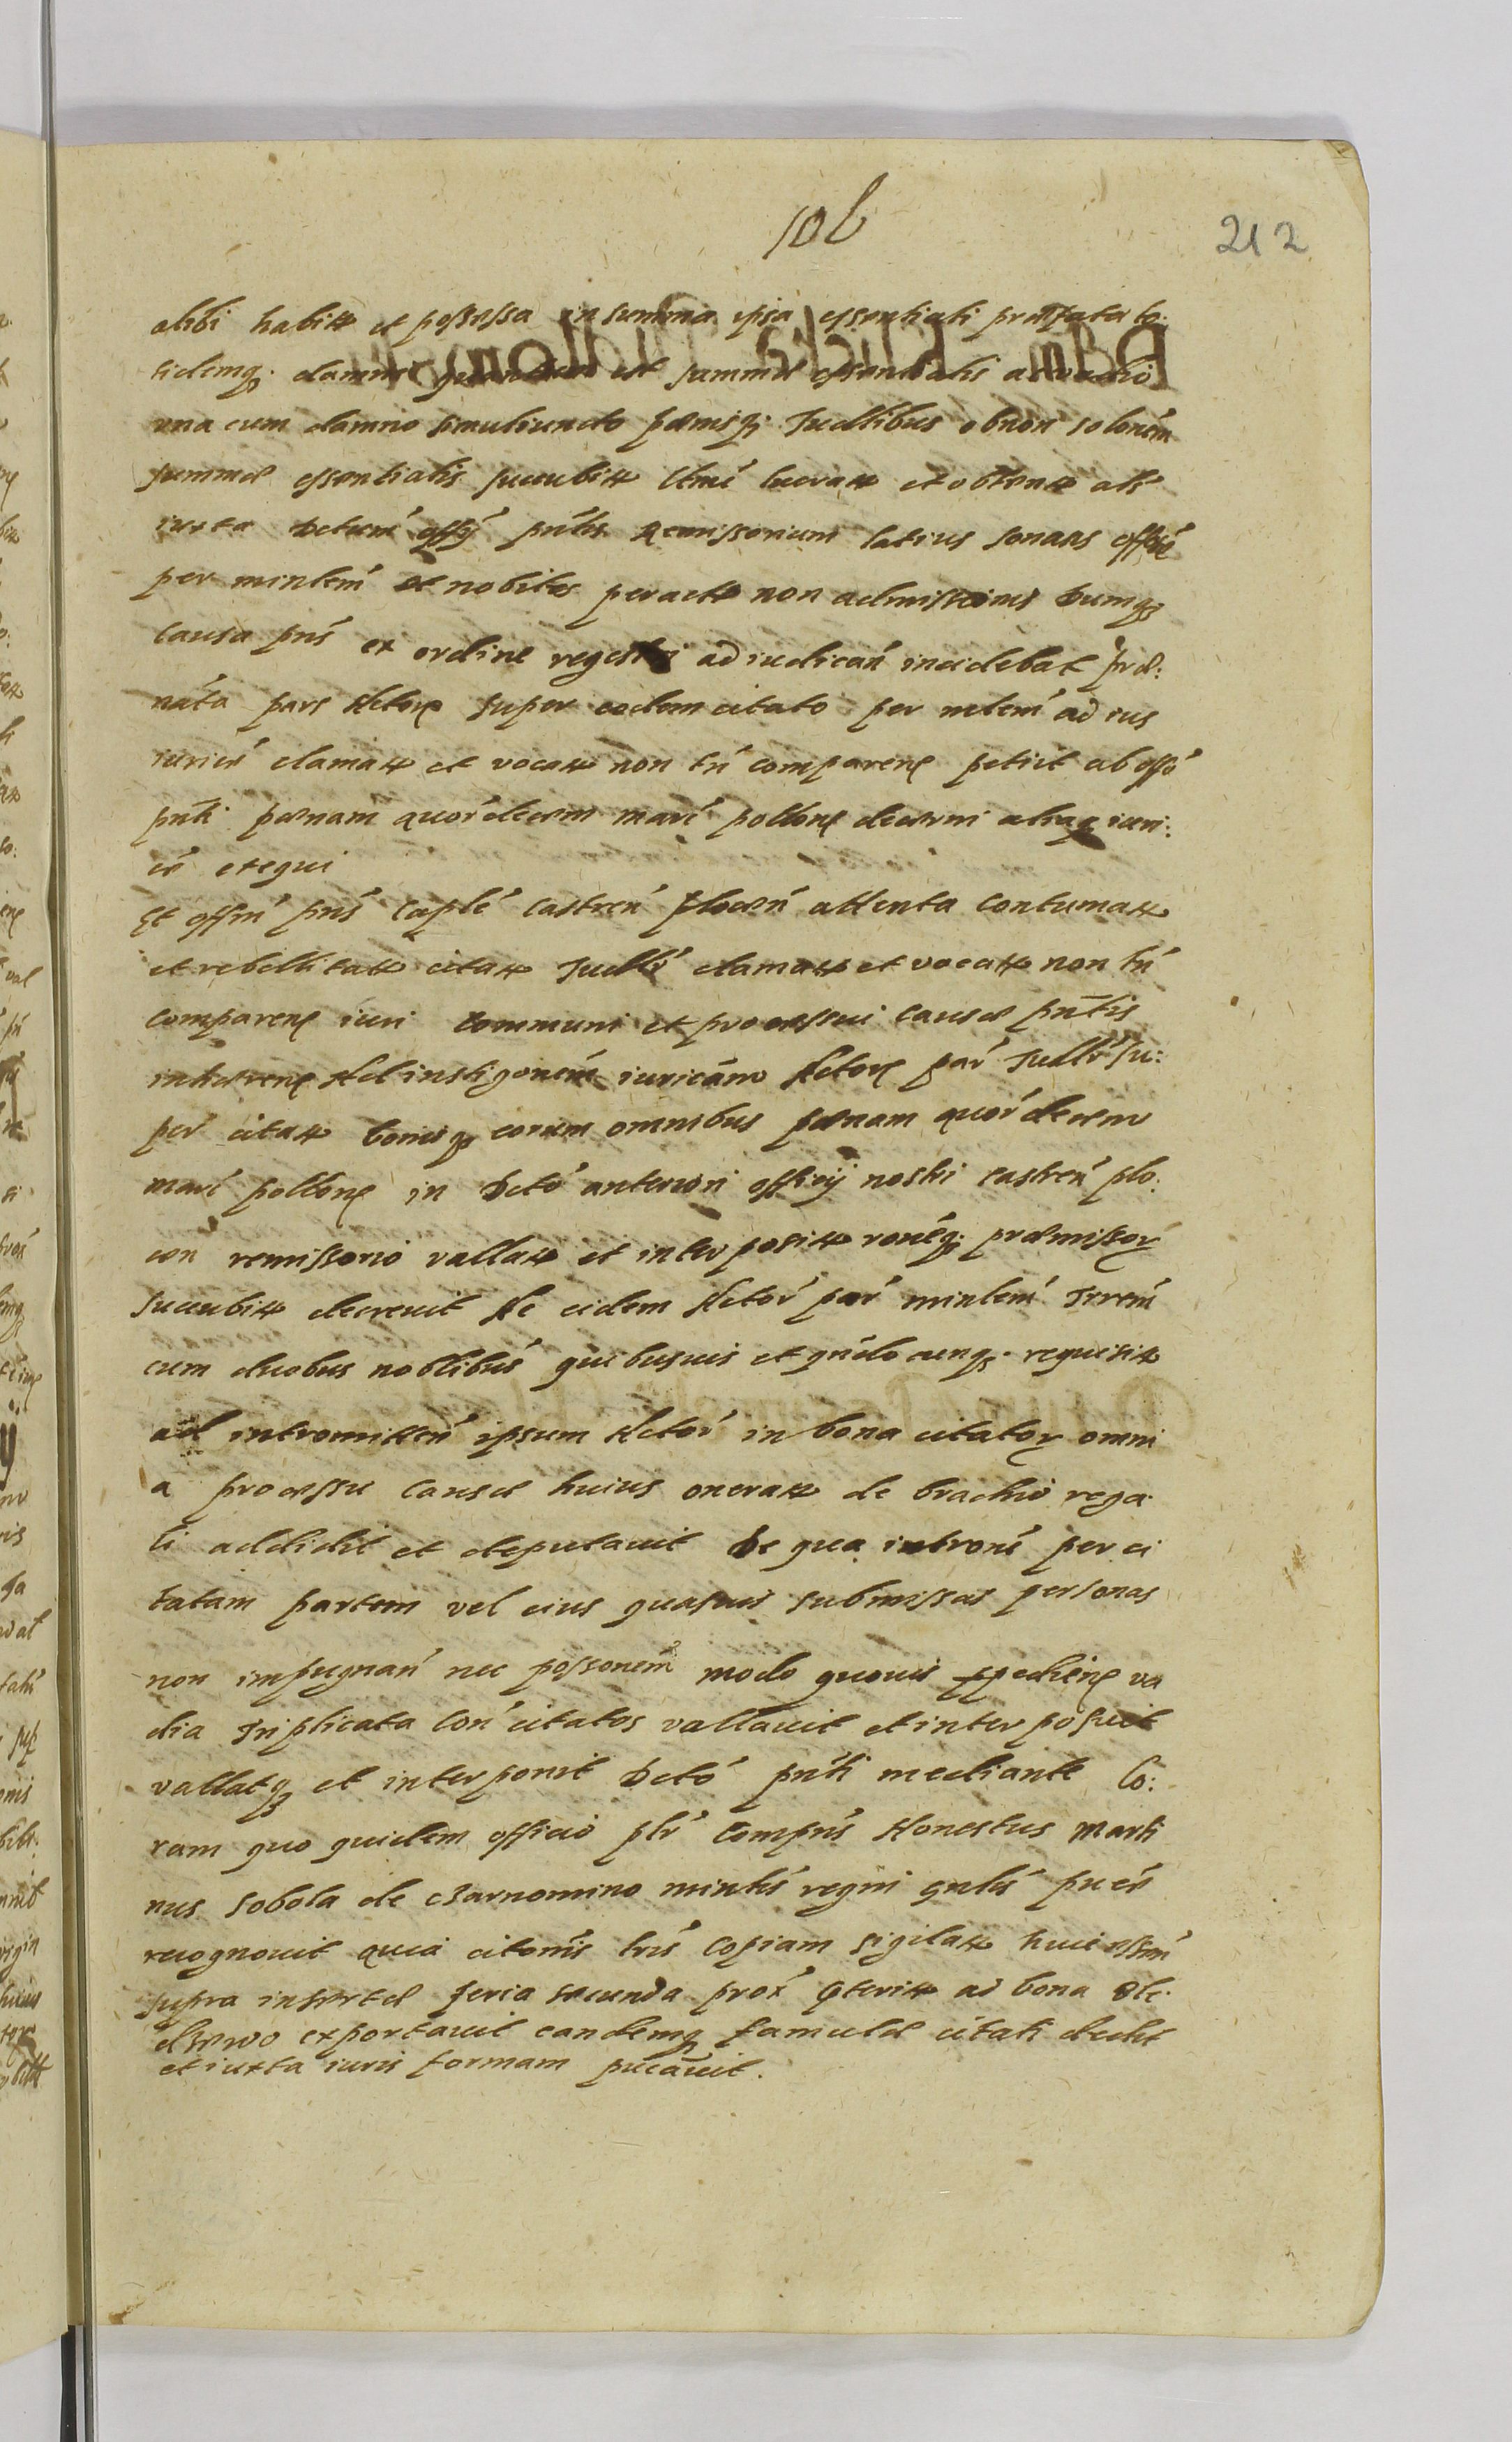 106
212
alibi habit et possessa in summa ipsa essentiali praefata to:
tidemq; damni quantum est summae essentialis ac vadio
una cum damno simuliuncto paenisq; Iudlibus obnon solonem
summae essentialis succubit ltmé lucrat et obtent als
iuxta Dctum offÿ pntis Remissorium latius sonans effée
per minlem et nobiles peract non admissionis Dumq;
causa pns ex ordine regestri ad iudican incidebat prae:
náta pars Actore super eodem citato per mlem ad ius
iurice clamat et vocat non tn comparene petiit ab offo
pnti paenam quordecem marc pollone decerni aliaq iuri:
ce exequi
Et offm pns Caple Castren ploceñ attenta contumat
et rebellitat citat Iudlr clamat et vocat non tn
comparene iuri communi et processui causae pntis
inhaerene Ad instigonem iuricam Actore par Iudlr su:
per citat bonisq; eorum omnibus paenam quordecem
marc pollone in Dcto anteriori officÿ nostri castren plo:
cen remissorio vallat et interposit ronéq; praemissor
succubit decrevit Ac eidem Actor par minlem Trrem
cum duobus noblibus quibusuis et qndocunq; requisit
ad intromitten ipsum Actor in bona citator omni
a processu causae huius onerat de brachio rega
li addidit et deputavit De qua introne per ci
tatam partem vel eius quasuis submissas personas
non impugnan nec possonem modo quouis expediene va
dia triplicata con citatos vallavit et interposuit
vallatq; et interponit Dcto pnti mediante Co:
ram quo quidem officio plr Comprns Honestus Marti
nus Sobola de Czarnomino minlis regni gnlis pu ce
recognovit quia citonis lris Copiam sigilat huic offm
supra insertae feria secunda prox pterit ad bona Ole:
dzewo exportavit eandemq; famulae citati dedit
et iuxta iuris formam pucavit.